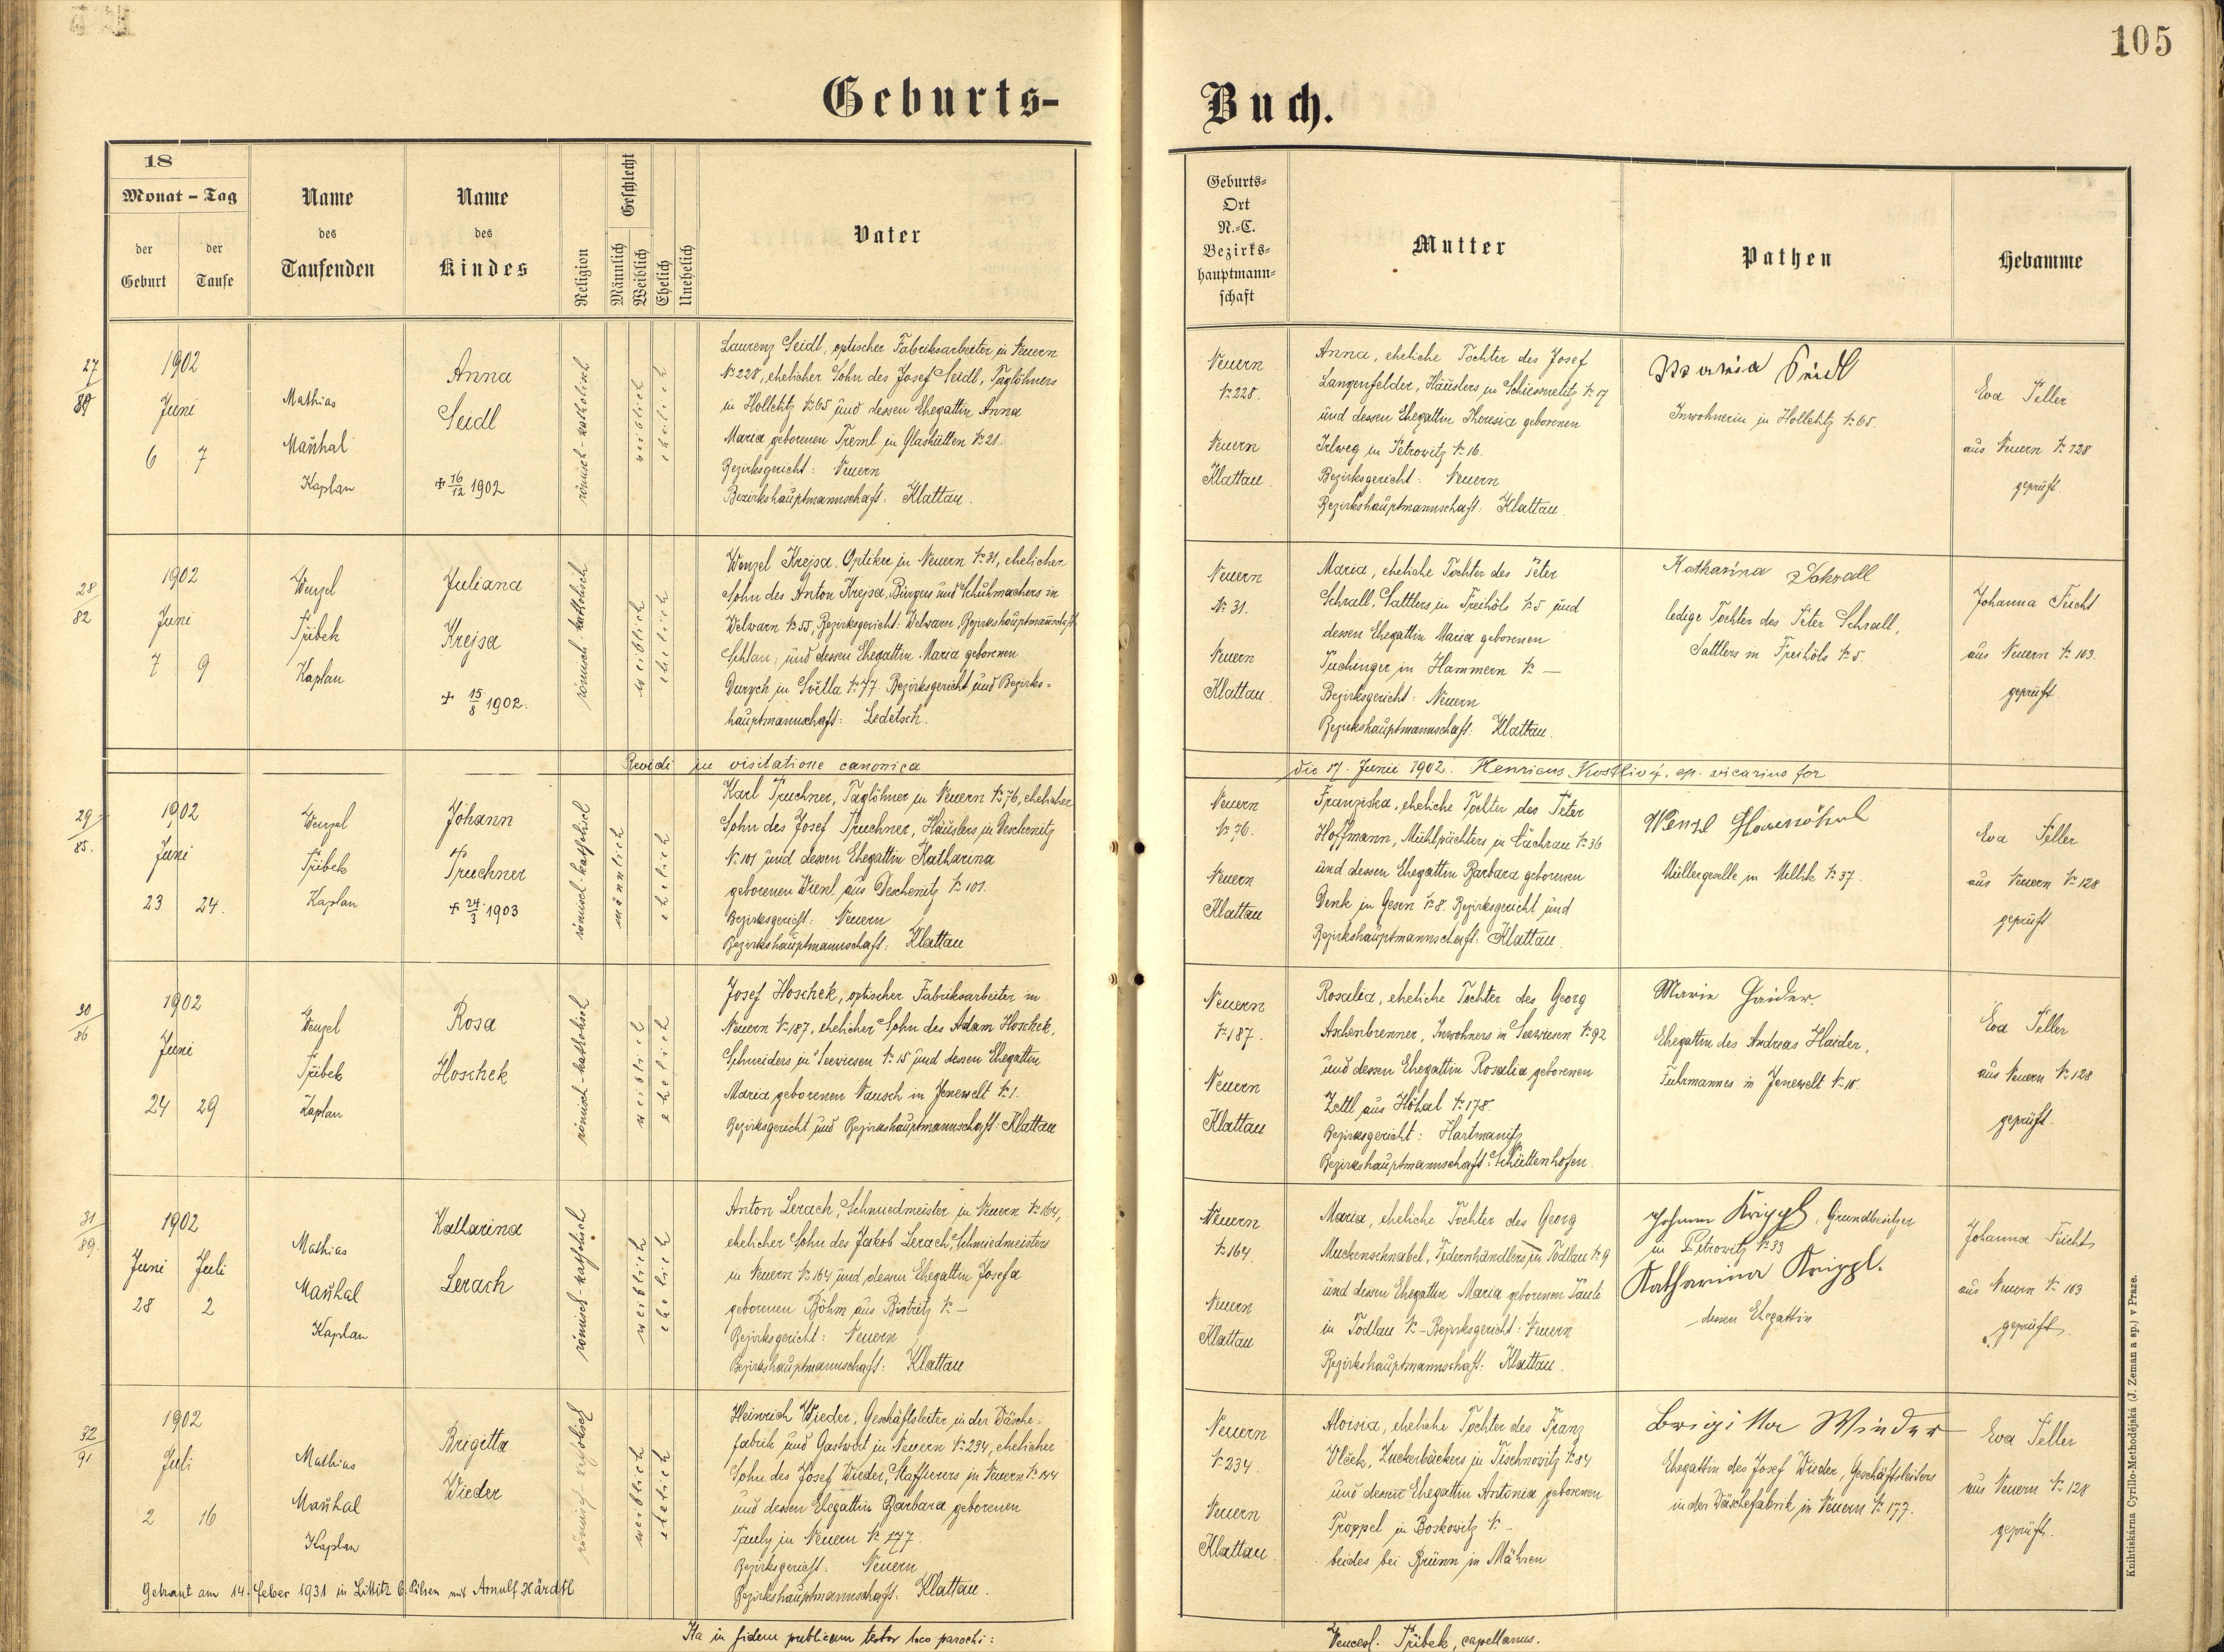 105
Geburts-
Buch.
18
Monat - Tag
der
Geburt
der
Taufe
Name
des
Taufenden
Name
des
Kindes
Religion
Geschlecht
Männlich
Weiblich
Ehelich
Unehelich
Vater
Geburts-
Ort
N.-C.
Bezirks-
hauptmann-
schaft
Mutter
Pathen
Hebamme
27
1902
Juni
6 7
Mathias
Maŭhal
Kaplan
Anna
Seidl
+ 16/12 1902
römisch-katholisch
weiblich
ehelich
Laurenz Seidl, optischer Fabriksarbeiter in Neuern
№ 228, ehelicher Sohn des Josef Seidl, Taglöhners
in Hollehtz № 65 und dessen Ehegattin Anna
Maria geborenen Treml in Glashütten № 21.
Bezirksgericht: Neuern
Bezirkshauptmannschaft: Klattau.
Neuern
№ 228.
Neuern
Klattau
Anna, eheliche Tochter des Josef
Langenfelder, Häuslers in № 17
und dessen Ehegattin Theresia geborenen
Irlweg in Petrowitz № 16.
Bezirksgericht: Neuern
Bezirkshauptmannschaft: Klattau.
Maria Seidl
Inwohnerin in Hollehtz № 65.
Eva Peller
aus Neuern № 128
geprüft.
28
82
1902
Juni
7 9
Wenzel
Přibek
Kaplan
Juliana
Krejsa
+ 15/8 1902.
römisch-katholisch
weiblich
ehelich
Wenzel Krejsa, Optiker in Neuern № 31, ehelicher
Sohn des Anton Krejsa, Bürgers und Schuhmachers in
Welwarn № 55, Bezirksgericht: Welwarn, Bezirkshauptmannschaft
Schlan; und dessen Ehegattin Maria geborenen
Durych in Světla № 77. Bezirksgericht und Bezirks-
hauptmannschaft: Ledetsch.
Neuern
№ 31.
Neuern
Klattau.
Maria, eheliche Tochter des Peter
Schrall, Sattlers in Freihöls № 5 und
dessen Ehegattin Maria geborenen
Tuchinger in Hammern № —
Bezirksgericht: Neuern
Bezirkshauptmannschaft: Klattau.
Katharina Schrall
ledige Tochter des Peter Schrall,
Sattlers in Freihöls № 5.
Johanna Feicht
aus Neuern № 103.
geprüft.
Revidi in visitatione canonica
die 17. Junii 1902. Henricus Kostlivý, ep. vicarius for
29
85.
1902
Juni
23 24.
Wenzel
Přibek
Kaplan
Johann
Truchner
+ 24./3 1903
römisch-katholisch
männlich
ehelich
Karl Truchner, Taglöhner in Neuern № 76, ehelicher
Sohn des Josef Truchner, Häuslers in Deschenitz
№ 101 und dessen Ehegattin Katharina
geborenen Wiesl, aus Deschenitz № 101.
Bezirksgericht: Neuern
Bezirkshauptmannschaft: Klattau
Neuern
№ 76.
Neuern
Klattau
Franziska, eheliche Tochter des Peter
Hoffmann, Mühlpächters in № 36
und dessen Ehegattin Barbara geborenen
Denk in Gesen № 8. Bezirksgericht und
Bezirkshauptmannschaft: Klattau.
Wenzl
Müllergeselle in Millik № 37.
Eva Peller
aus Neuern № 128
geprüft
30
86
1902
Juni
24 29
Wenzel
Přibek
Kaplan
Rosa
Hoschek
römisch-katholisch
weiblich
ehelich
Josef Hoschek, optischer Fabriksarbeiter in
Neuern № 187, ehelicher Sohn des Adam Hoschek,
Schneiders in Seewiesen № 15 und dessen Ehegattin
Maria geborenen Nausch in Jenewelt № 1.
Bezirksgericht und Bezirkshauptmannschaft: Klattau
Neuern
№ 187.
Neuern
Klattau
Rosalia, eheliche Tochter des Georg
Aschenbrenner, Inwohners in Seewiesen № 92
und dessen Ehegattin Rosalia geborenen
Zettl aus Höhal № 178.
Bezirksgericht: Hartmanitz
Bezirkshauptmannschaft: Schüttenhofen.
Marie Haider.
Ehegattin des Andreas Haider,
Fuhrmannes in Jenewelt № 10.
Eva Peller
aus Neuern № 128
geprüft.
31
89.
1902
Juni Juli
28 2
Mathias
Maŭhal
Kaplan
Katharina
Lerach
römisch-katholisch
weiblich
ehelich
Anton Lerach, Schmiedmeister in Neuern № 164,
ehelicher Sohn des Jakob Lerach, Schmiedmeisters
in Neuern № 164 und dessen Ehegattin Josefa
geborenen Böhm aus Bistritz № —
Bezirksgericht: Neuern
Bezirkshauptmannschaft: Klattau
Neuern
№ 164.
Neuern
Klattau
Maria, eheliche Tochter des Georg
Muckenschnabel, Federnhändlers in Todlau № 9
und dessen Ehegattin Maria geborenen Pauli
in Todlau № — Bezirksgericht: Neuern
Bezirkshauptmannschaft: Klattau.
Johann Krippl, Grundbesitzer
in Petrowitz № 33
Katharina Krippl.
dessen Ehegattin
Johanna Feicht
aus Neuern № 103
geprüft.
32
91
1902
Juli
2 16
Mathias
Maŭhal
Kaplan
Brigitta
Wieder
römisch-katholisch
weiblich
ehelich
Heinrich Wieder, Geschäftsleiter in der Wäsche-
fabrik und Gastwirt in Neuern № 234, ehelicher
Sohn des Josef Wieder, Staffierers in Neuern № 144
und dessen Ehegattin Barbara geborenen
Pauly in Neuern № 177.
Bezirksgericht: Neuern
Bezirkshauptmannschaft: Klattau.
Neuern
№ 234.
Neuern
Klattau.
Aloisia, eheliche Tochter des Franz
Vlček, Zuckerbäckers in Tischnowitz № 84
und dessen Ehegattin Antonia geborenen
Troppel in Boskowitz № —
beides bei Brünn in Mähren
Brigitta Wieder
Ehegattin des Josef Wieder, Geschäftsleiters
in der Wäschefabrik in Neuern № 177.
Eva Peller
aus Neuern № 128
geprüft.
Getraut am 14. Feber 1931 in Littitz b. Pilsen mit Arnulf Härdtl
Ita in fidem publicam testor loco parochi:
Vencesl. Přibek, capellanus.
Knihtiskárna Cyrillo-Methodějská (J. Zeman a sp.) v Praze.